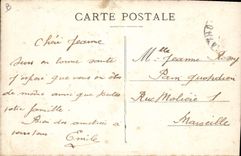 CARTE POSTALE
Chère Jeanne
Suis en bonne santé
j'espère que vous en êtes
de même ainsi que toute
votre famille.
Bien des amitiés à
tous
Emile
Mlle Jeanne
Pain quotidien
Rue Molière 1
Marseille